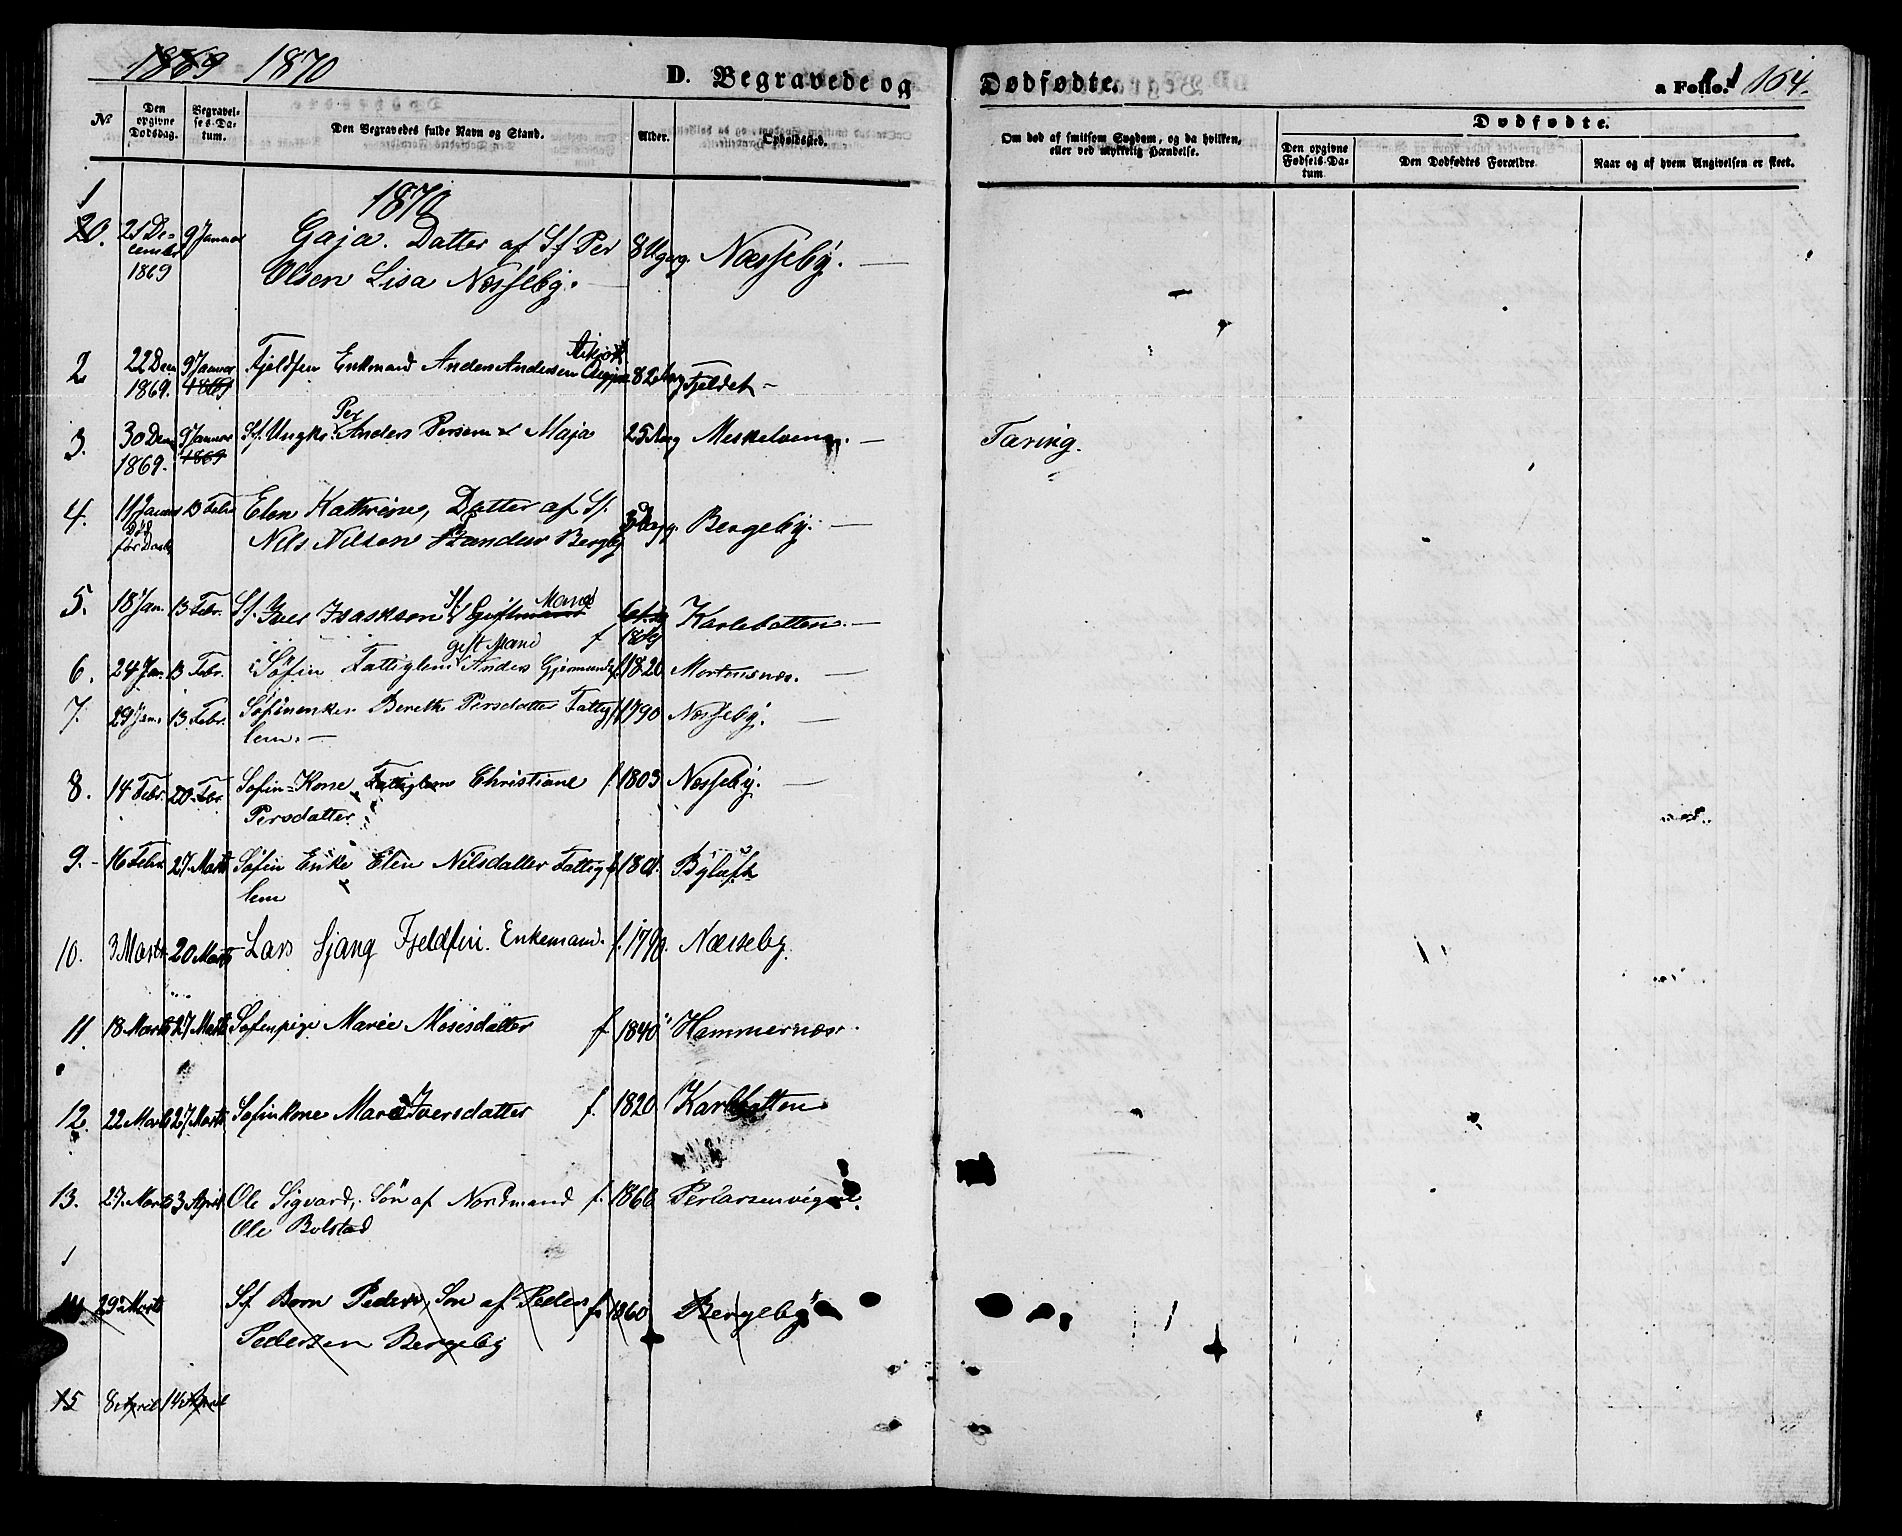 1869 1870
D. Begravede og Dødfødte. a Folio. 164.
No
Den opgivne Dødsdag.
Begravelses-Datum.
Den Begravedes fulde Navn og Stand.
Alder.
Opholdssted.
Om død af smitsom Sygdom, og da hvilken, eller ved ulykkelig Hændelse.
Dødfødte.
Den opgivne Fødsels-Datum
Den Dødfødtes Forældre.
Naar og af hvem Angivelsen er skeet.
1870
1
20. 21 De- 9 Januar Gaja. Datter af Sf Per 8 Uger Næsseby. —
cember
1869 Olsen Lisa Næsseby.
2 22 Dem 9 Januar Fjeldfin Enkemand Anders Andersen 82 Aar Fjeldet —
1869. 1869
Per
3. 30 Dem 9 Januar Sf. Ungk. Anders Persen Maja 25 Aar Meskelven. — Tæring.
1869. 1869
4. 11 Januar 13 Febr Elen Kathrine, Datter af Sf. 3 Dage. Bergeby. —
Død før Daab Nils Nilsen Bergeby
5. 18 Jan. 13 Febr. Sf. Iver Isaksen Sf Giftmand Mands Karlebotten. —
gift Mand f
6. 24 Jan. 13 Febr. Søfin Fattiglem Anders Gjermunds f. 1820 Mortensnæs. —
7. 29 Jan. 13 Febr. Søfinenke Berethe Persdatter Fattig f. 1790 Næsseby. —
lem. —
8. 14 Febr. 20 Febr Søfin-Kone Fattiglem Christiane f. 1803 Næsseby. —
Persdatter
9. - 16 Febr. 27. Marts Søfin Enke Elen Nilsdatter Fattig f. 1801. Byluft
lem
10. 3 Marts 20 Marts Lars Sjang Fjeldfin. Enkemand. f. 1790. Næsseby.
11. 18 Marts 27 Marts Søfinpige Marie Mosesdatter f 1840 Hammernæs.
12. 22 Marts 27 Marts Søfinkone Marie Iversdatter f. 1820 Karlbotten
13. 27. Marts 3 April Ole Sigvard, Søn af Nordmand f. 1866 Perlarsenvigen.
Ole Bolstad
1
14 29 Marts Sf Barn Peder, Søn af Peder f. 1860 Bergeby
Pedersen Bergeby
15 8 April 14 April